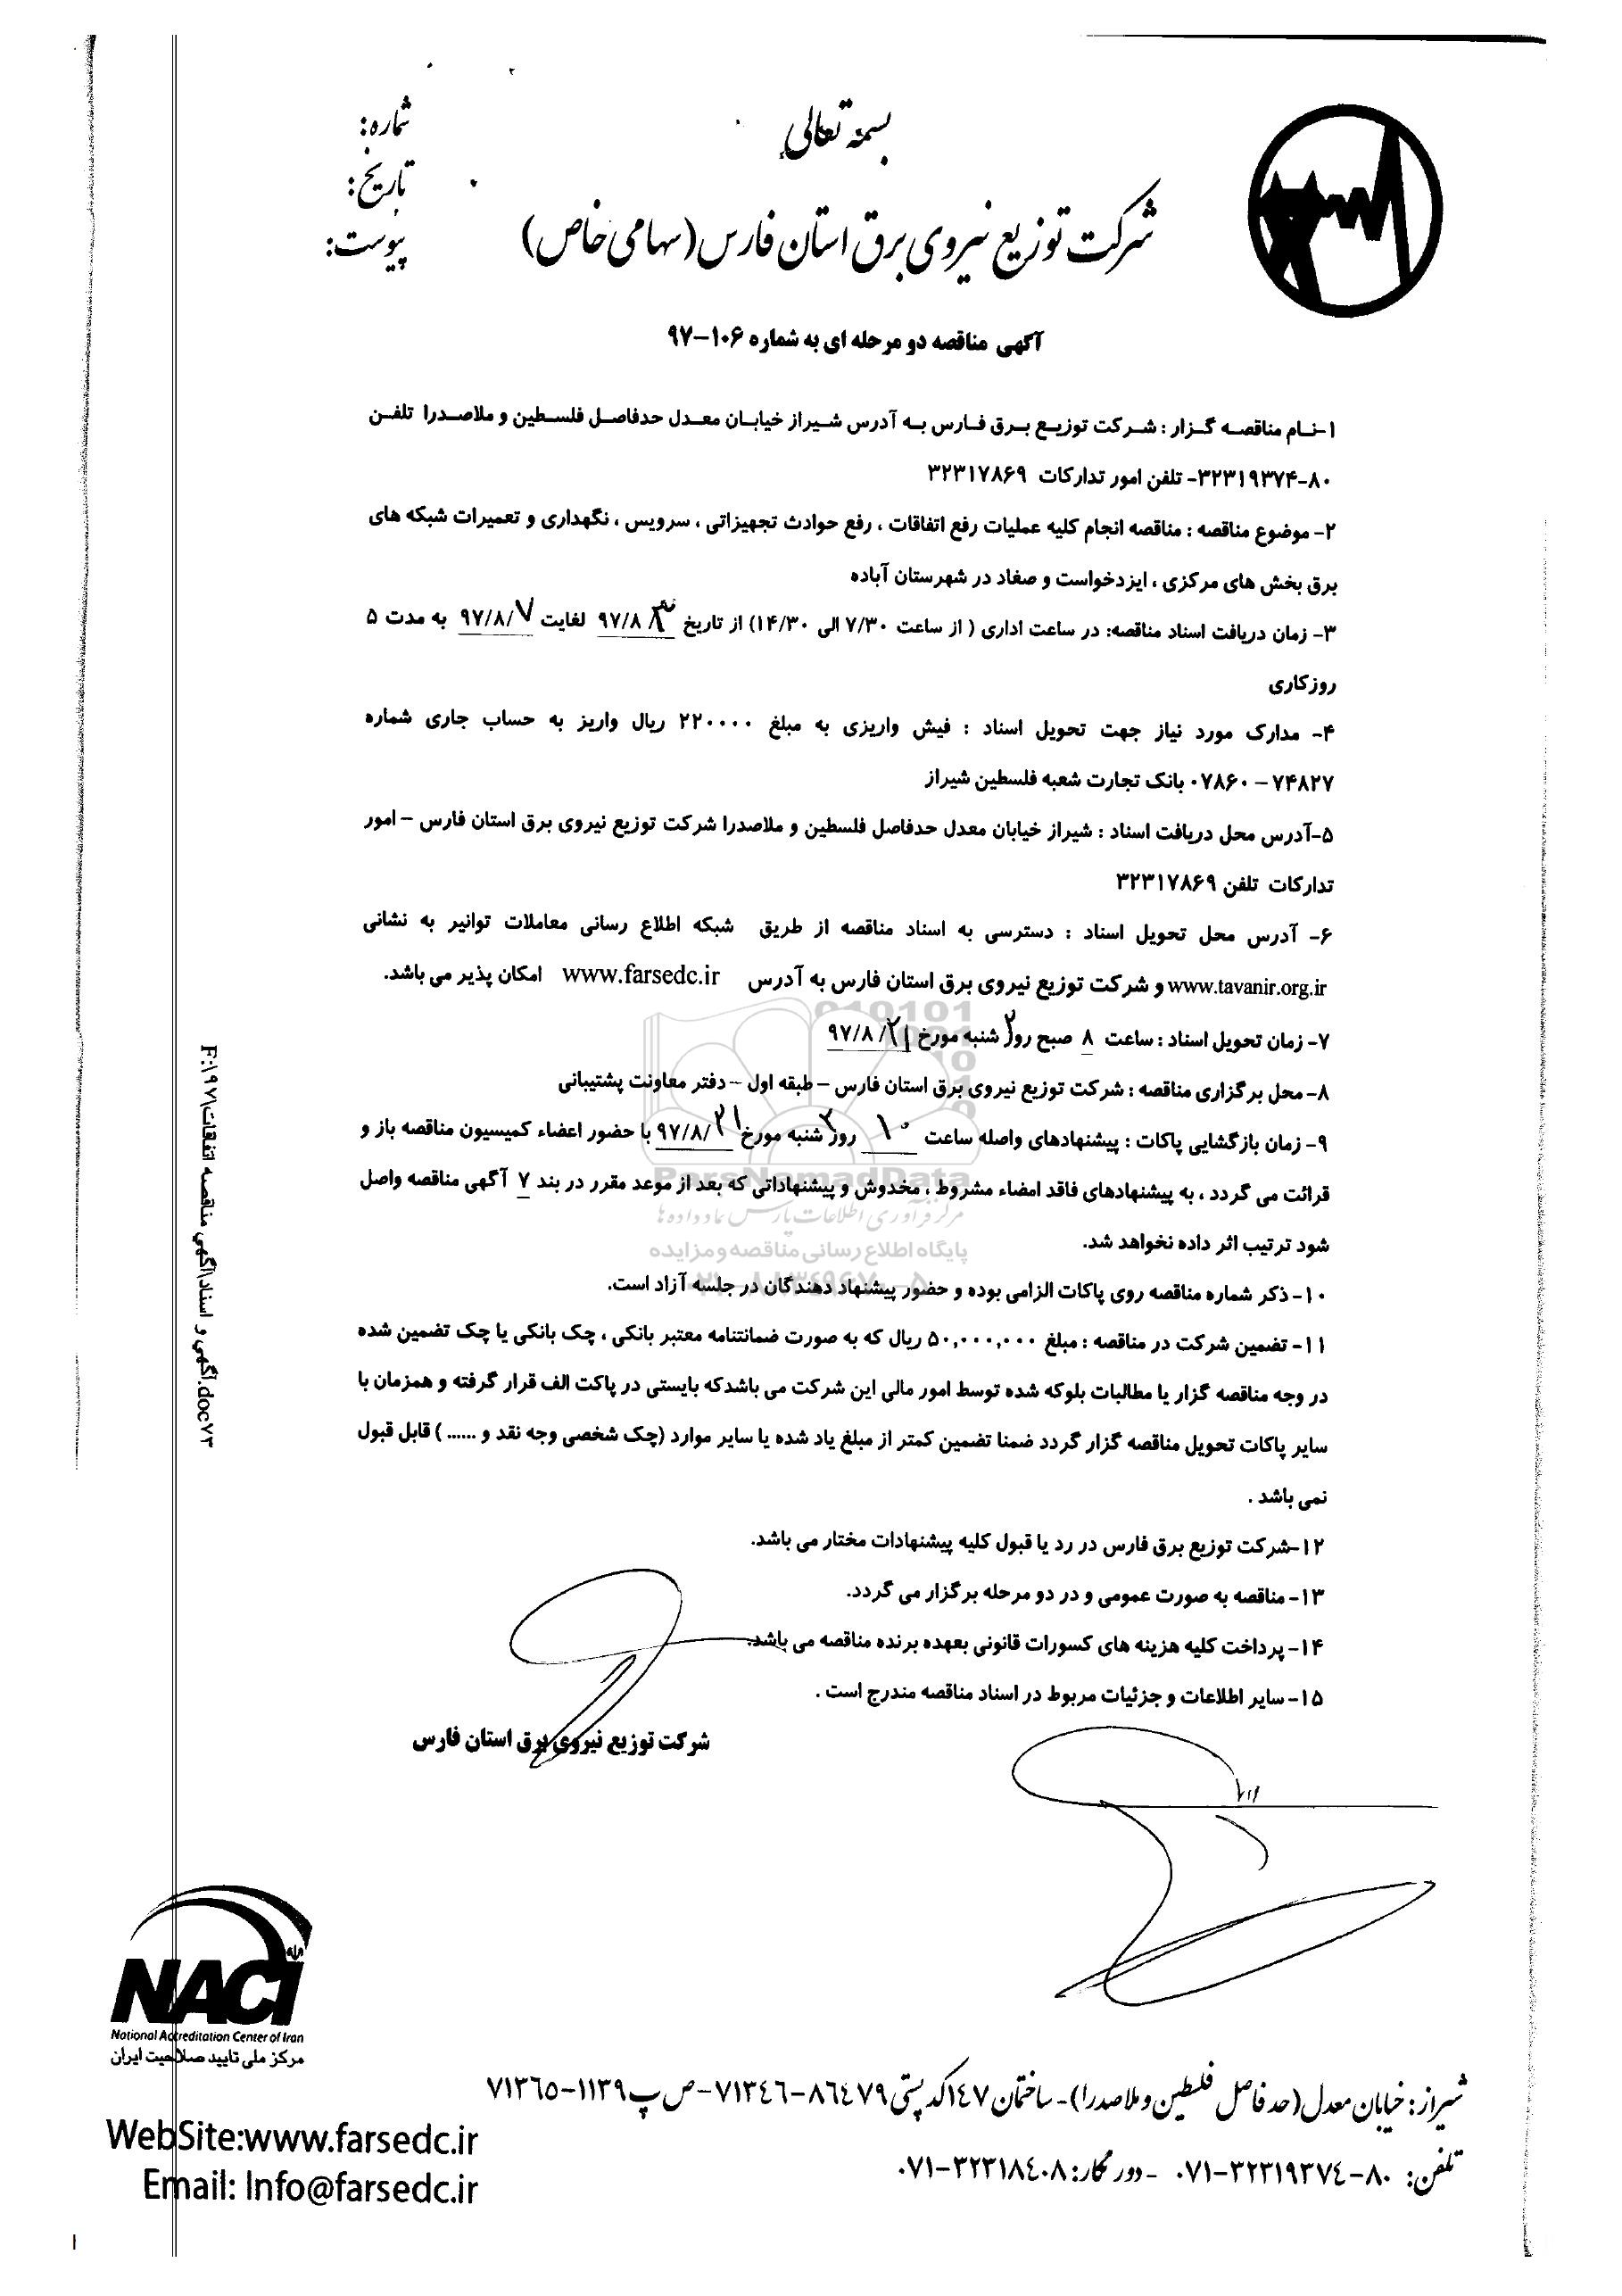 بسمه تعالی
شرکت توزیع نیروی برق استان فارس (سهامی خاص)
شماره:
تاریخ:
پیوست:
آگهی مناقصه دو مرحله ای به شماره ۱۰۶-۹۷
۱-نام مناقصه گزار : شرکت توزیع برق فارس به آدرس شیراز خیابان معدل حدفاصل فلسطین و ملاصدرا تلفن
۳۲۳۱۹۳۷۴-۸۰- تلفن امور تدارکات ۳۲۳۱۷۸۶۹
۲- موضوع مناقصه : مناقصه انجام کلیه عملیات رفع اتفاقات ، رفع حوادث تجهیزاتی ، سرویس ، نگهداری و تعمیرات شبکه های
برق بخش های مرکزی ، ایزدخواست و صغاد در شهرستان آباده
۳- زمان دریافت اسناد مناقصه: در ساعت اداری ( از ساعت ۷/۳۰ الی ۱۴/۳۰) از تاریخ ۹۷/۸/۳ لغایت ۹۷/۸/۷ به مدت ۵
روزکاری
۴- مدارک مورد نیاز جهت تحویل اسناد : فیش واریزی به مبلغ ۲۲۰۰۰۰ ریال واریز به حساب جاری شماره
۷۴۸۲۷ – ۰۷۸۶۰ بانک تجارت شعبه فلسطین شیراز
۵-آدرس محل دریافت اسناد : شیراز خیابان معدل حدفاصل فلسطین و ملاصدرا شرکت توزیع نیروی برق استان فارس – امور
تدارکات تلفن ۳۲۳۱۷۸۶۹
۶- آدرس محل تحویل اسناد : دسترسی به اسناد مناقصه از طریق شبکه اطلاع رسانی معاملات توانیر به نشانی
www.tavanir.org.ir و شرکت توزیع نیروی برق استان فارس به آدرس www.farsedc.ir امکان پذیر می باشد.
۷- زمان تحویل اسناد : ساعت ۸ صبح روز ۲ شنبه مورخ ۹۷/۸/۲۱
۸- محل برگزاری مناقصه : شرکت توزیع نیروی برق استان فارس – طبقه اول – دفتر معاونت پشتیبانی
۹- زمان بازگشایی پاکات : پیشنهادهای واصله ساعت ۱۰ روز ۲ شنبه مورخ ۹۷/۸/۲۱ با حضور اعضاء کمیسیون مناقصه باز و
قرائت می گردد ، به پیشنهادهای فاقد امضاء مشروط ، مخدوش و پیشنهاداتی که بعد از موعد مقرر در بند ۷ آگهی مناقصه واصل
شود ترتیب اثر داده نخواهد شد.
۱۰- ذکر شماره مناقصه روی پاکات الزامی بوده و حضور پیشنهاد دهندگان در جلسه آزاد است.
۱۱- تضمین شرکت در مناقصه : مبلغ ۵۰,۰۰۰,۰۰۰ ریال که به صورت ضمانتنامه معتبر بانکی ، چک بانکی یا چک تضمین شده
در وجه مناقصه گزار یا مطالبات بلوکه شده توسط امور مالی این شرکت می باشدکه بایستی در پاکت الف قرار گرفته و همزمان با
سایر پاکات تحویل مناقصه گزار گردد ضمنا تضمین کمتر از مبلغ یاد شده یا سایر موارد (چک شخصی وجه نقد و ...... ) قابل قبول
نمی باشد .
۱۲-شرکت توزیع برق فارس در رد یا قبول کلیه پیشنهادات مختار می باشد.
۱۳- مناقصه به صورت عمومی و در دو مرحله برگزار می گردد.
۱۴- پرداخت کلیه هزینه های کسورات قانونی بعهده برنده مناقصه می باشد.
۱۵- سایر اطلاعات و جزئیات مربوط در اسناد مناقصه مندرج است .
شرکت توزیع نیروی برق استان فارس
ParsNamadData
مرکز فرآوری اطلاعات پارس نماد داده ها
پایگاه اطلاع رسانی مناقصه و مزایده
F:\۹۷\آگهی و اسناد\آگهی مناقصه اتفاقات\۷۳.doc
NACI
National Accreditation Center of Iran
مرکز ملی تایید صلاحیت ایران
شیراز: خیابان معدل (حد فاصل فلسطین و ملاصدرا) - ساختمان ۱۴۷ کد پستی ۸۶۴۷۹-۷۱۳۴۶-ص پ ۱۱۳۹-۷۱۳۶۵
تلفن: ۸۰-۳۲۳۱۹۳۷۴-۰۷۱ - دورنگار: ۳۲۳۱۸۴۰۸-۰۷۱
WebSite:www.farsedc.ir
Email: Info@farsedc.ir